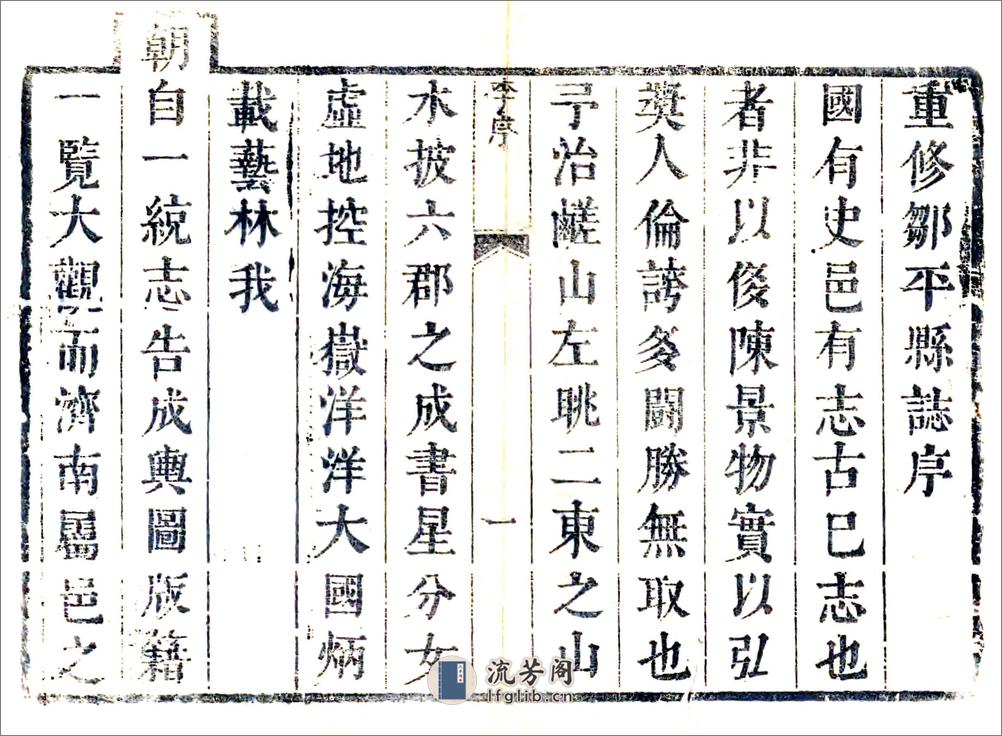 重修鄒平縣誌序
國有史邑有志古巳志也
者非以侈陳景物實以弘
奬人倫誇夛鬭勝無取也
予治鹺山左眺二東之山
李序 一
水披六郡之成書星分女
虛地控海嶽洋洋大國炳
載藝林我
朝自一統志告成輿圖版籍
一覽大觀而濟南屬邑之
流芳阁
lfglib.cn